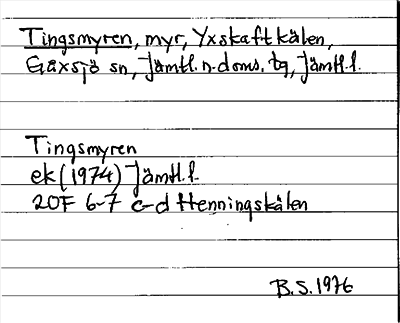 Tingsmyren, myr, Yxskaftkälen,
Gåxsjö sn, Jämtl.n.doms.tg, Jämtl.l.
Tingsmyren
ek (1974) Jämtl.l.
20F 6-7 c-d Henningskälen
B.S. 1976